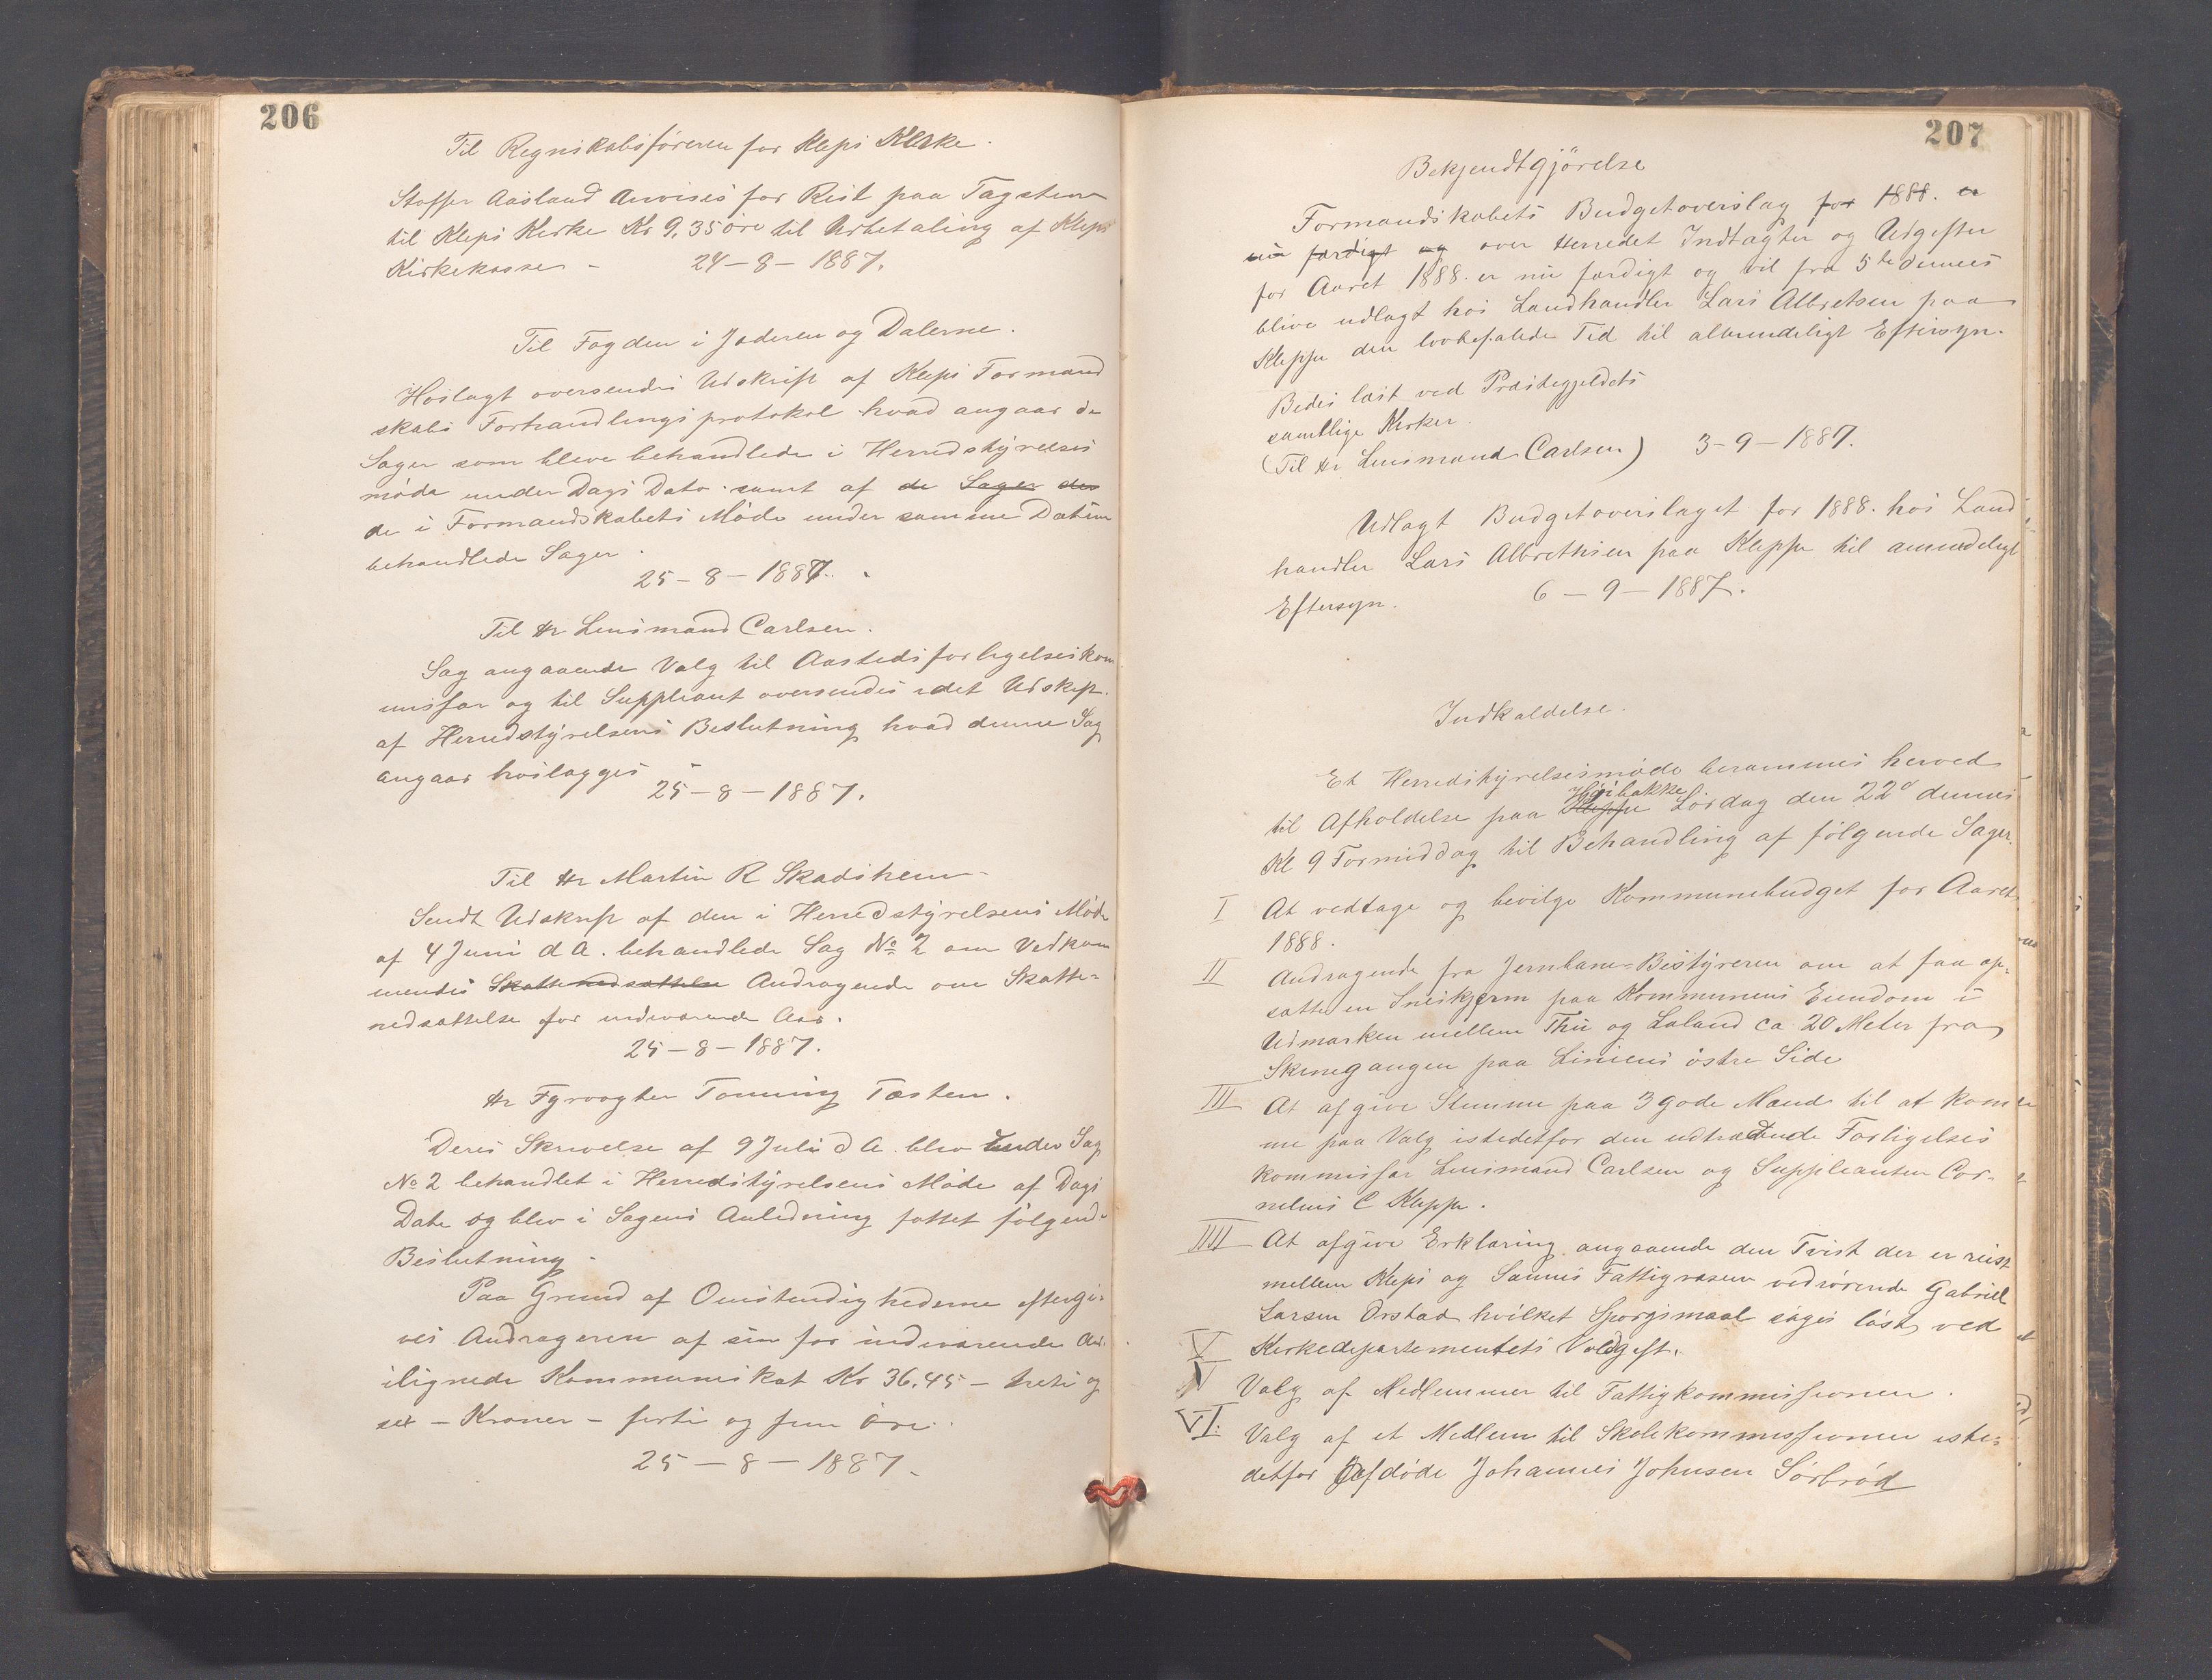 206
Til Regnskabsføreren for Kleps Kirke.
Staffer Aasland Anvises for Rest paa Tagsten
til Kleps Kirke Kr 9,35 øre til Udbetaling af Kleps
Kirkekasse – 24 – 8 – 1887.
Til Fogden i Jæderen og Dalerne.
Hoslagt oversendes Udskrift af Kleps Formand
skabs Forhandlingsprotokol hvad angaar de
Sager som bleve behandlede i Herredstyrelses
møde under Dags Dato samt af de Sager der
de i Formandskabets Møde under samme Datum
behandlede Sager.
25 – 8 – 1887.
Til Hr Lensmand Carlsen.
Sag angaaende Valg til Aastedsforligelseskom
missær og til Suppleant oversendes idet Udskrift
af Herredstyrelsens Beslutning hvad denne Sag
angaar hoslagges
25 – 8 – 1887.
Til Hr Martin R Skadsheim
Sendt Udskrift af den i Herredstyrelsens Møde
af 4 Juni d A. behandlede Sag No 2 om Vedkom
mendes Skattenedsættelse Andragende om Skatte=
nedsættelse for indeværende Aar.
25 – 8 – 1887.
Hr Fyrvogter Tonning Tæsten.
Deres Skrivelse af 9 Juli d A. blev under Sag
No 2 behandlet i Herredstyrelsens Møde af Dags
Dato og blev i Sagens Anledning fattet følgende
Beslutning.
Paa Grund af Omstendighederne eftergi=
ves Andrageren af sin for indeværende Aar
ilignede Kommuneskat Kr 36,45 – treti og
sex – Kroner – forti og fem Øre.
25 – 8 – 1887.
207
Bekjendtgjörelse
Formandskabets Budgetoverslag for 1888. er
nu færdigt og over Herredet Indtægter og Udgifter
for Aaret 1888. er nu færdigt og vil fra 5te dennes
blive udlagt hos Landhandler Lars Albretsen paa
Kleppe den lovbefalede Tid til almindeligt Eftersyn.
Bedes læst ved Præstegjeldets
samtlige Kirker.
(Til Hr Lensmand Carlsen) 3 – 9 – 1887.
Udlagt Budgetoverslaget for 1888. hos Land
handler Lars Albrethsen paa Kleppe til
Eftersyn. 6 – 9 – 1887.
Indkaldelse.
Et Herredstyrelsesmøde berammes herved
til Afholdelse paa Kleppe Lørdag den 22d dennes
Kl 9 Formiddag til Behandling af følgende Sager.
I At vedtage og bevilge Kommunebudget for Aaret
1888.
II Andragende fra Jernbane=Bestyreren om at faa op=
satte en Sneskjerm paa Kommunens Eiendom i
Udmarken mellem Thu og Laland ca 20 Meter fra
Skinegangen paa Liniens østre Side
III At afgive Stemme paa 3 gode Mænd til at kom
me paa Valg istedetfor den udtrædende Forligelses
kommissær Lensmand Carlsen og Suppleanten Cor-
nelius C Kleppe.
IIII At afgive Erklæring angaaende den Tvist der er reist
mellem Kleps og Sannes Fattigvæsen vedrørende Gabriel
Larsen Orstad hvilket Spørgsmaal søges løst ved
Kirkedepartementets Voldgift.
V Valg af Medlemmer til Fattigkommissionen.
VI. Valg af et Medlem til Skolekommissionen iste=
detfor afdøde Johannes Johnsen Sørbrød